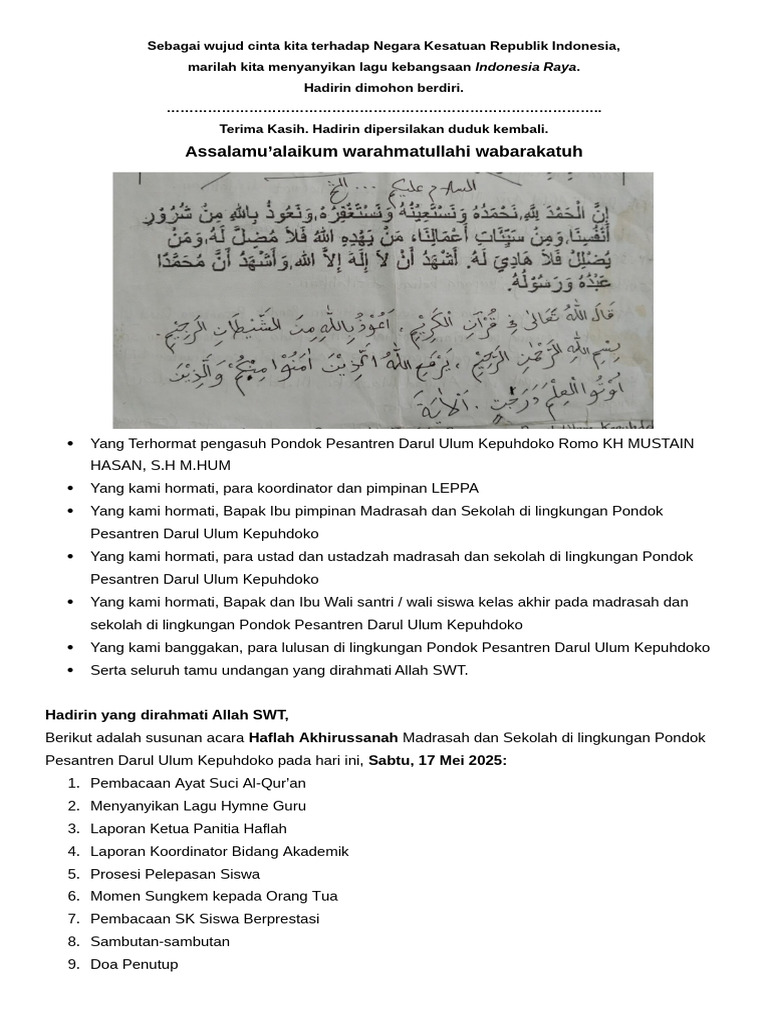 Sebagai wujud cinta kita terhadap Negara Kesatuan Republik Indonesia,
marilah kita menyanyikan lagu kebangsaan Indonesia Raya.
Hadirin dimohon berdiri.
…………………………………………………………………………………..
Terima Kasih. Hadirin dipersilakan duduk kembali.
Assalamu’alaikum warahmatullahi wabarakatuh
السلام عليكم ... الخ
إِنَّ الْحَمْدَ لِلَّهِ،نَحْمَدُهُ وَنَسْتَعِيْنُهُ وَنَسْتَغْفِرُهُ،وَنَعُوذُ بِاللهِ مِنْ شُرُوْرِ
أَنْفُسِنَا،وَمِنْ سَيِّئَاتِ أَعْمَالِنَا، مَنْ يَهْدِهِ اللهُ فَلاَ مُضِلَّ لَهُ،وَمَنْ
يُضْلِلْ فَلاَ هَادِيَ لَهُ. أَشْهَدُ أَنْ لاَ إِلَهَ إِلاَّ الله،وَأَشْهَدُ أَنَّ مُحَمَّدًا
عَبْدُهُ وَرَسُوْلُهُ.
قَالَ اللهُ تَعَالىٰ فِى قُرْآنِ الْكَرِيْمِ ، اَعُوْذُ بِاللهِ مِنَ الشَّيْطَانِ الرَّجِيْمِ.
بِسْمِ اللهِ الرَّحْمٰنِ الرَّحِيْمِ ، يَرْفَعِ اللهُ الَّذِيْنَ اٰمَنُوْا مِنْكُمْ وَالَّذِيْنَ
اُوْتُوا الْعِلْمَ دَرَجٰتٍ . اَلْاٰيَةَ
• Yang Terhormat pengasuh Pondok Pesantren Darul Ulum Kepuhdoko Romo KH MUSTAIN
HASAN, S.H M.HUM
• Yang kami hormati, para koordinator dan pimpinan LEPPA
• Yang kami hormati, Bapak Ibu pimpinan Madrasah dan Sekolah di lingkungan Pondok
Pesantren Darul Ulum Kepuhdoko
• Yang kami hormati, para ustad dan ustadzah madrasah dan sekolah di lingkungan Pondok
Pesantren Darul Ulum Kepuhdoko
• Yang kami hormati, Bapak dan Ibu Wali santri / wali siswa kelas akhir pada madrasah dan
sekolah di lingkungan Pondok Pesantren Darul Ulum Kepuhdoko
• Yang kami banggakan, para lulusan di lingkungan Pondok Pesantren Darul Ulum Kepuhdoko
• Serta seluruh tamu undangan yang dirahmati Allah SWT.
Hadirin yang dirahmati Allah SWT,
Berikut adalah susunan acara Haflah Akhirussanah Madrasah dan Sekolah di lingkungan Pondok
Pesantren Darul Ulum Kepuhdoko pada hari ini, Sabtu, 17 Mei 2025:
1. Pembacaan Ayat Suci Al-Qur’an
2. Menyanyikan Lagu Hymne Guru
3. Laporan Ketua Panitia Haflah
4. Laporan Koordinator Bidang Akademik
5. Prosesi Pelepasan Siswa
6. Momen Sungkem kepada Orang Tua
7. Pembacaan SK Siswa Berprestasi
8. Sambutan-sambutan
9. Doa Penutup